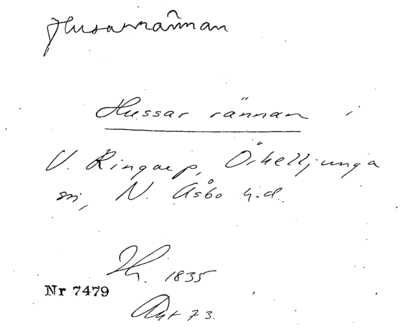 Husarrännan
Hussar rännan i
V. Ringarp, Örkelljunga
sn, N. Åsbo h.d.
1835
Nr 7479
73.